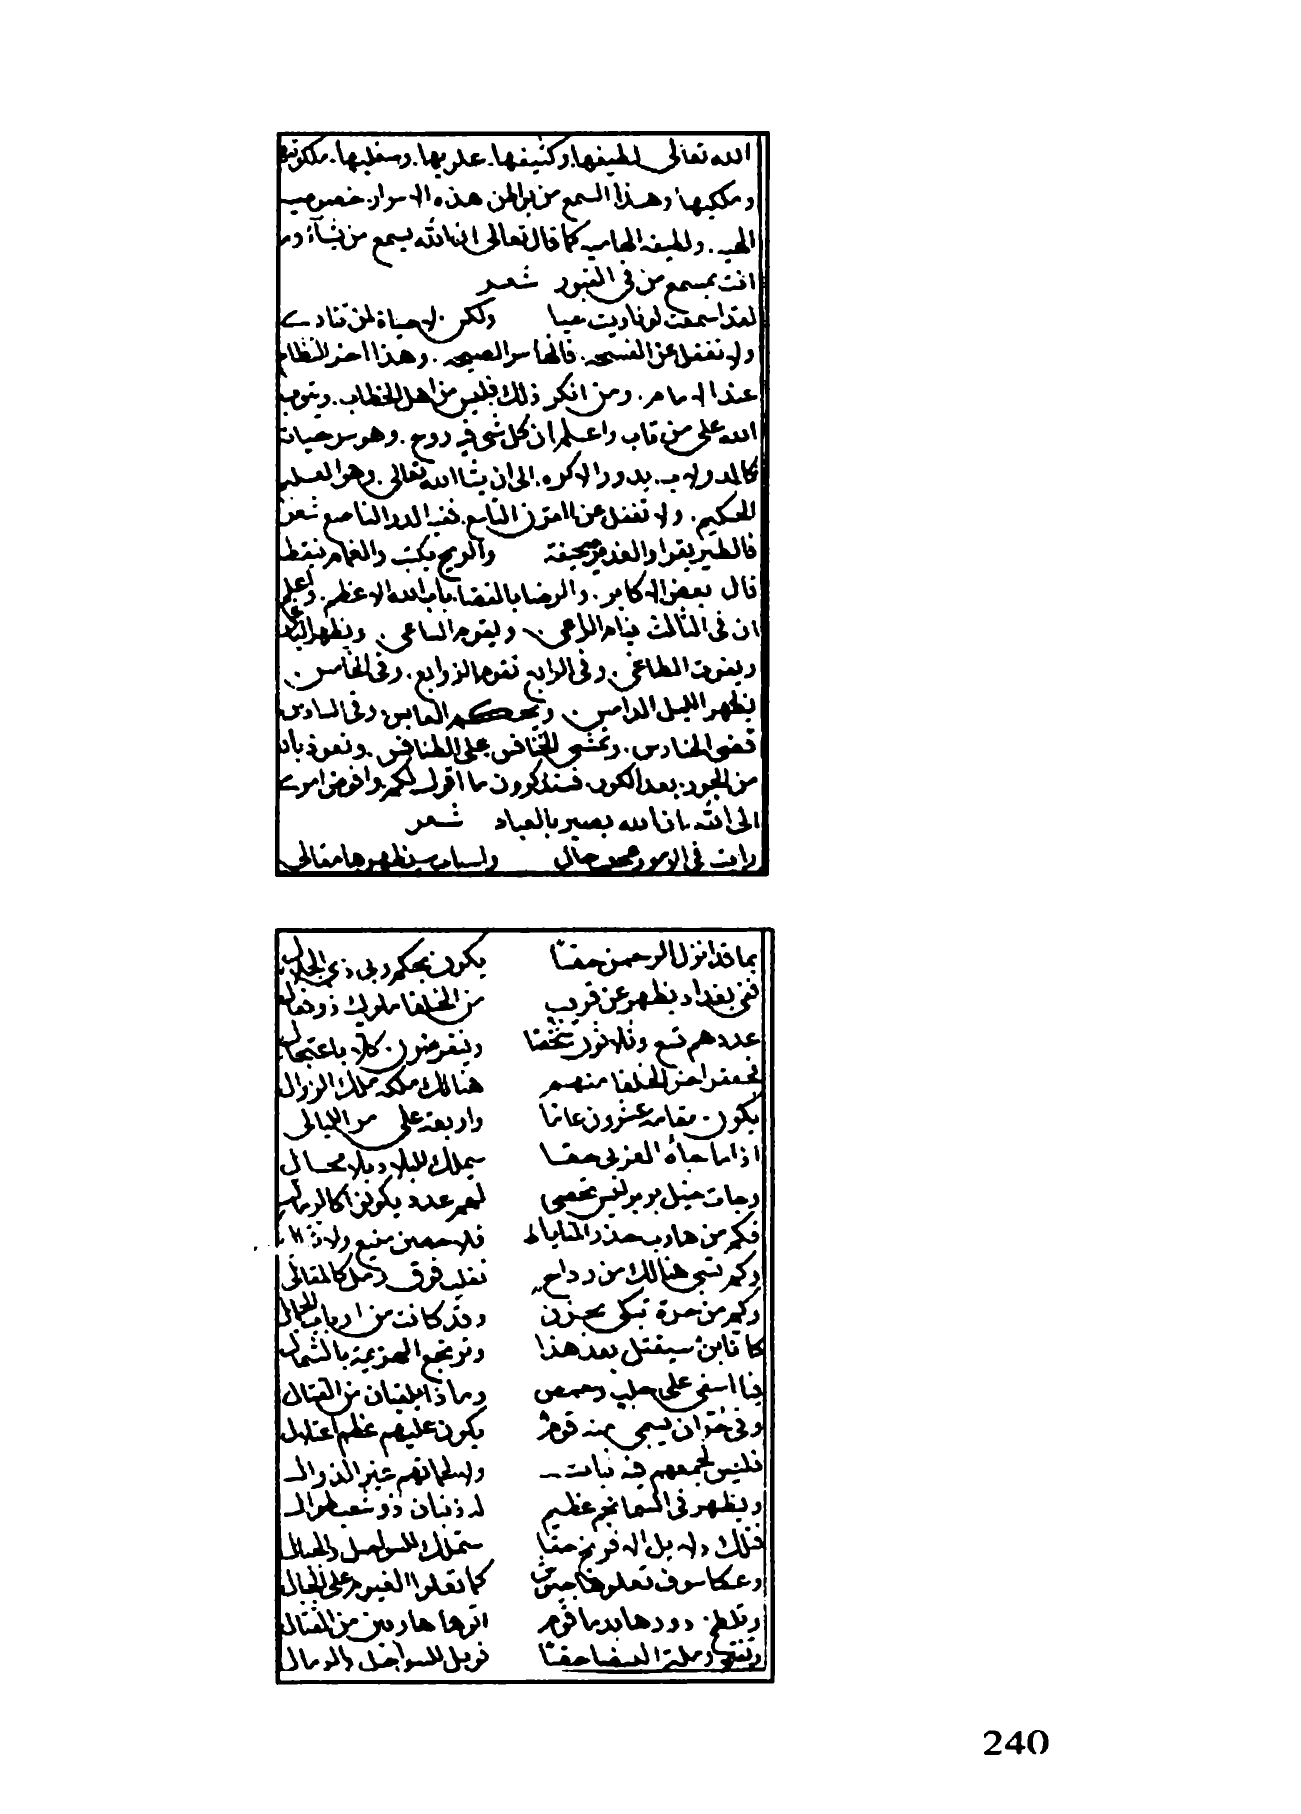 الله تعالى لطيفها. وكثيفها. علويها. وسفليها. ملكوتيها
وملكيها وهذا السمع من براطن هذه الاسرار. خصوصيه
الهيه. ولطيفه الهاميه كما قال تعالى ان الله يسمع من يشآء وما
انت بمسمع من في القبور شعر
لقد اسمعت لو ناديت حيا ولكن لا حياة لمن تنادي
ولا تغفل عن الفسحه. فالها سر الصيحه. وهذا اخر النظام
عند الامام. ومن انكر ذلك فليس من اهل الخطاب. ويتوب
الله على من تاب واعلم ان كل شي فيه روح. وهو سر حياته
كالدولاب. يدور الاكره. الى ان يشا الله تعالى. وهو العليم
الحكيم. ولا تغفل عن القرن التاسع. ففيه الدر الناصع شعر
فالطير يقرا والغدير صحيفة والريح يكتب والغمام ينقط
قال بعض الاكابر. والرضا بالقضا. باب الله الاعظم. واعلم
ان في الثالث ينام الراعي. ويقوم الساعي. ويظهر الباغي
ويفوت الطاغي. وفي الرابع تقوم الزوابع. وفي الخامس.
يظهر الليل الدامس. ويحكم العابس. وفي السادس
تضي الحنادس. وتمشي الخنافس على الطنافس. ونعوذ بالله
من الجور. بعد الكور. فستذكرون ما اقول لكم. وافوض امري
الى الله. ان الله بصير بالعباد شعر
رايت في الامور عجيب حال واسباب سيظهرها مقالي
بما قد انزل الرحمن حقا يكون بحكم ربي ذي الجلال
ففي بغداد يظهر عن قريب من الخلفا ملوك ذو فعال
عددهم تسع وثلاثون شخصا وينقرضون كلا باعتجال
فجعفر اخر الخلفا منهم هنالك ملكه ملك الزوال
يكون مقامه عشرون عاما واربعة على مر الليالي
اذا ما جاه الغربي حقا سيملك للبلاد بلا محال
وجات خيل بربر ليس تحصى لهم عدد يكونوا كالرمال
فكم من هارب حذر المنايا فلا حصن منيع ولا
وكم تسبى هنالك من رداح تقلب فوق رمل كالمقالي
وكم من حرة تبكي بحزن وقد كانت من ارباب الحجال
سيقتل بعد هذا وترتجع الهزيمة بالشمال
فيا اسفي على حلب وحمص وما ذا يلقيان من القتال
وفي حران يسبى منه قوم يكون عليهم عظم اعتلال
فليس لجمعهم فيه ثبات ولا لحاتهم غير الذوال
ويظهر في السما نجم عظيم له ذنبان ذو شعب طوال
فتلك دلايل الافرنج حقا ستملك للسواحل والجبال
وعكا سوف تعلوها جيوش كما تعلوا الغيوم على الجبال
وتلطخ دورها بدما قوم اتوها هاربين من القتال
ورملة البيضا حقا فويل للسواحل والرمال
240